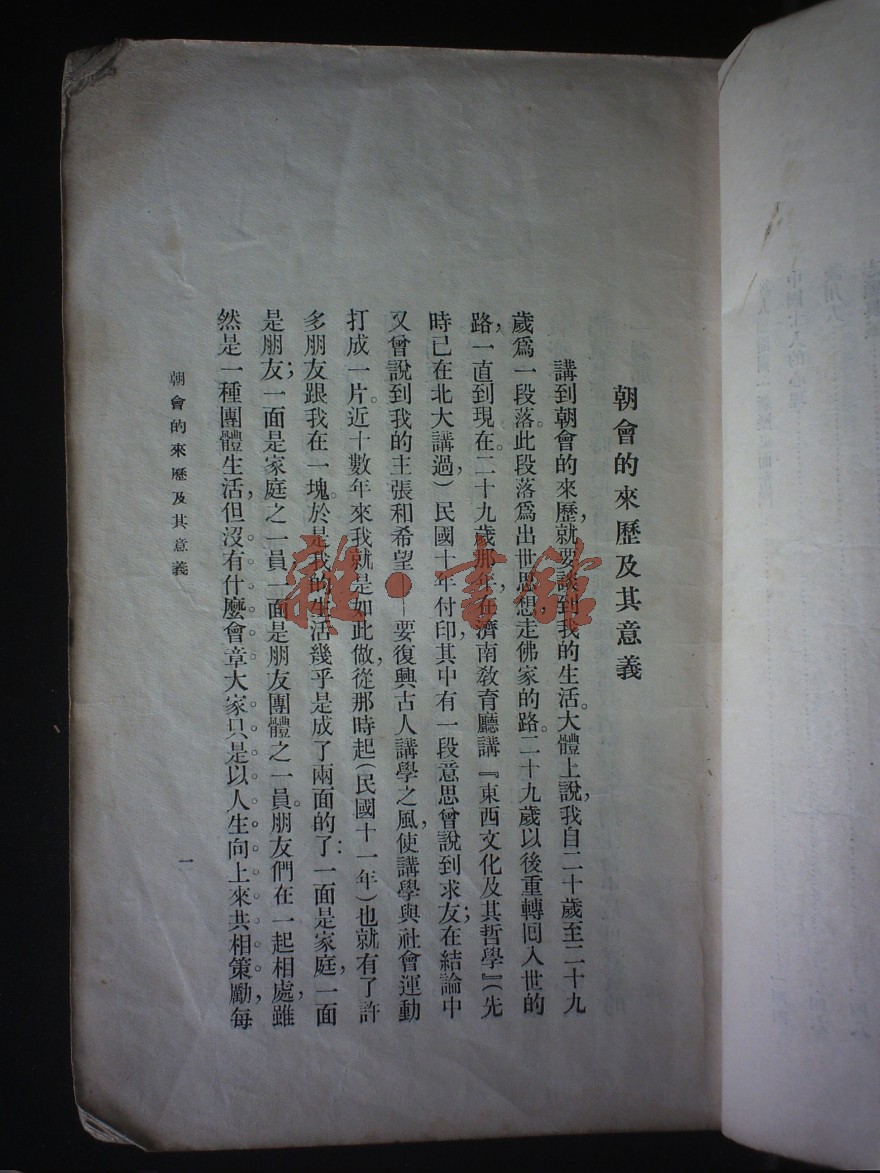 朝會的來歷及其意義
講到朝會的來歷，就要談到我的生活。大體上說，我自二十歲至二十九
歲爲一段落。此段落爲出世思想，走佛家的路。二十九歲以後重轉回入世的
路，一直到現在。二十九歲那年，在濟南敎育廳講『東西文化及其哲學』（先
時已在北大講過，）民國十年付印，其中有一段意思曾說到求友；在結論中
又曾說到我的主張和希望——要復興古人講學之風，使講學與社會運動
打成一片。近十數年來我就是如此做，從那時起（民國十一年）也就有了許
多朋友跟我在一塊。於是我的生活幾乎是成了兩面的了：一面是家庭，一面
是朋友；一面是家庭之一員，一面是朋友團體之一員。朋友們在一起相處，雖
然是一種團體生活，但沒有什麼會章，大家只是以人生向上來共相策勵，每
朝會的來歷及其意義
一
雜·書館